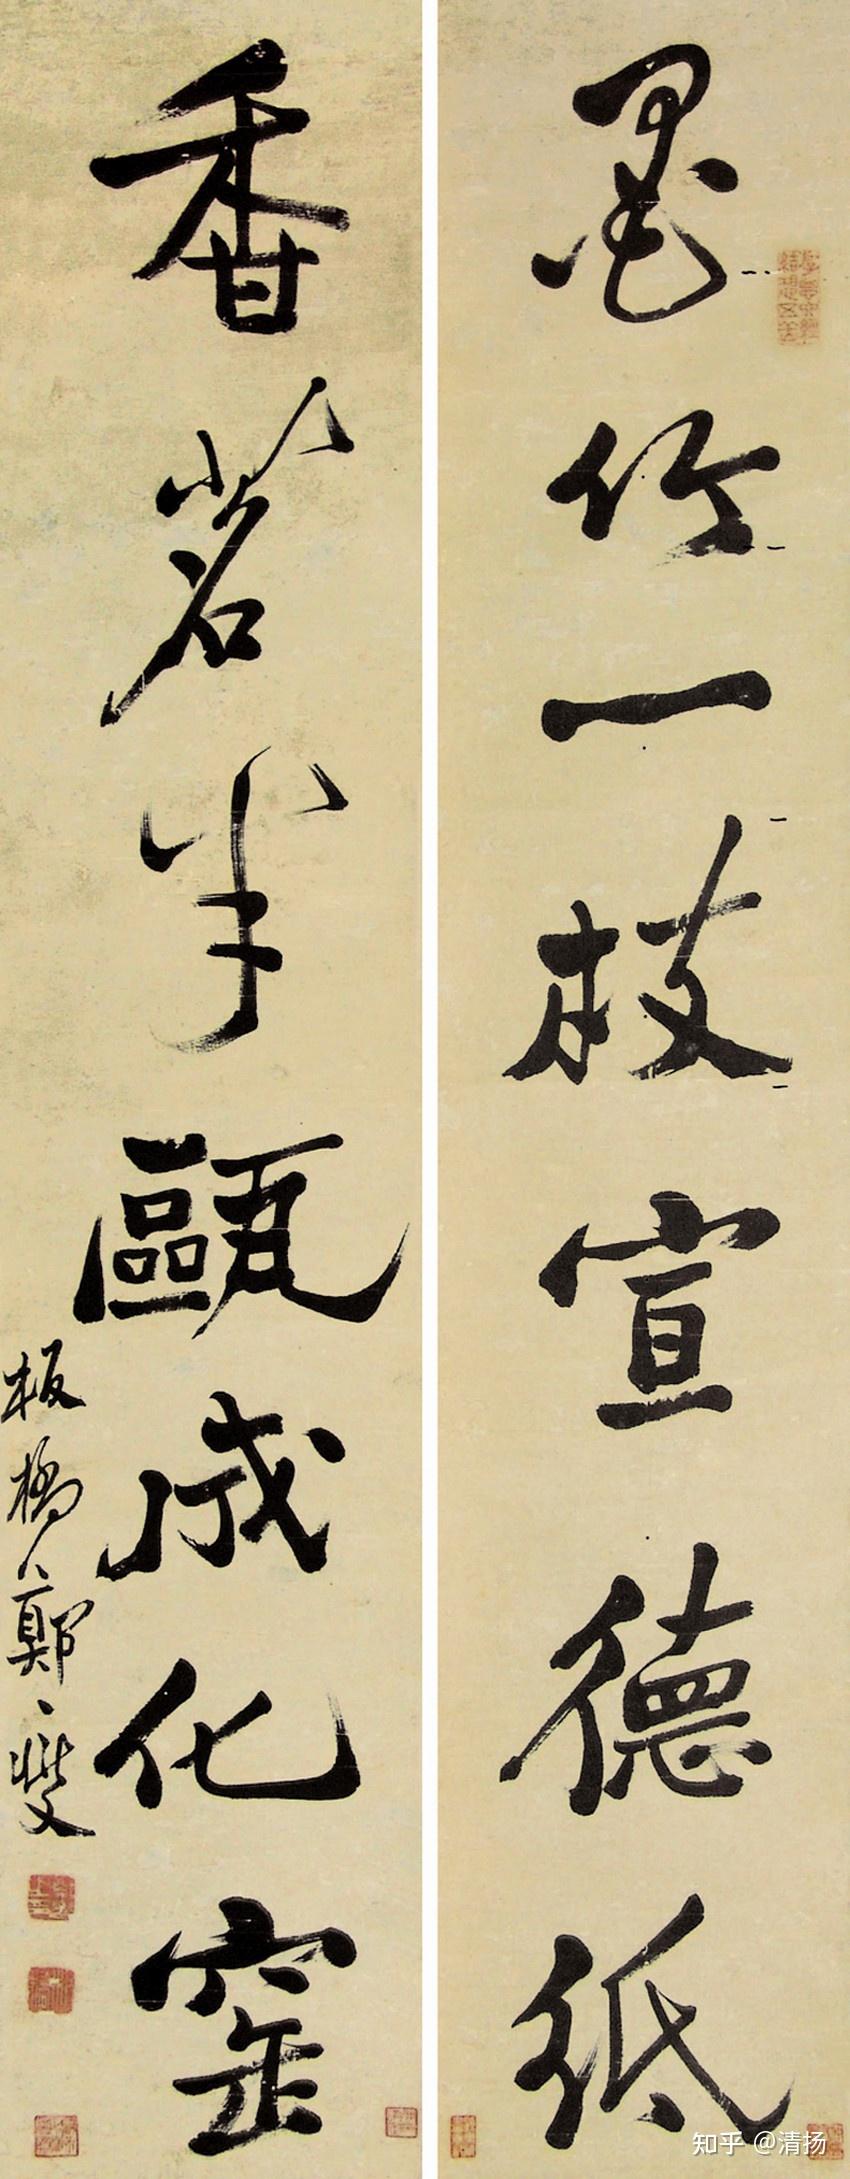 墨竹一枝宣德纸
香茗半甌成化窑
板橋鄭燮
知乎 @清扬